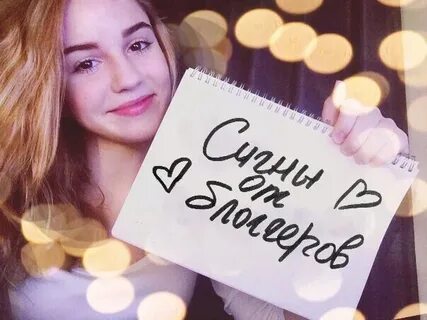 Сигны
от
блоггеров